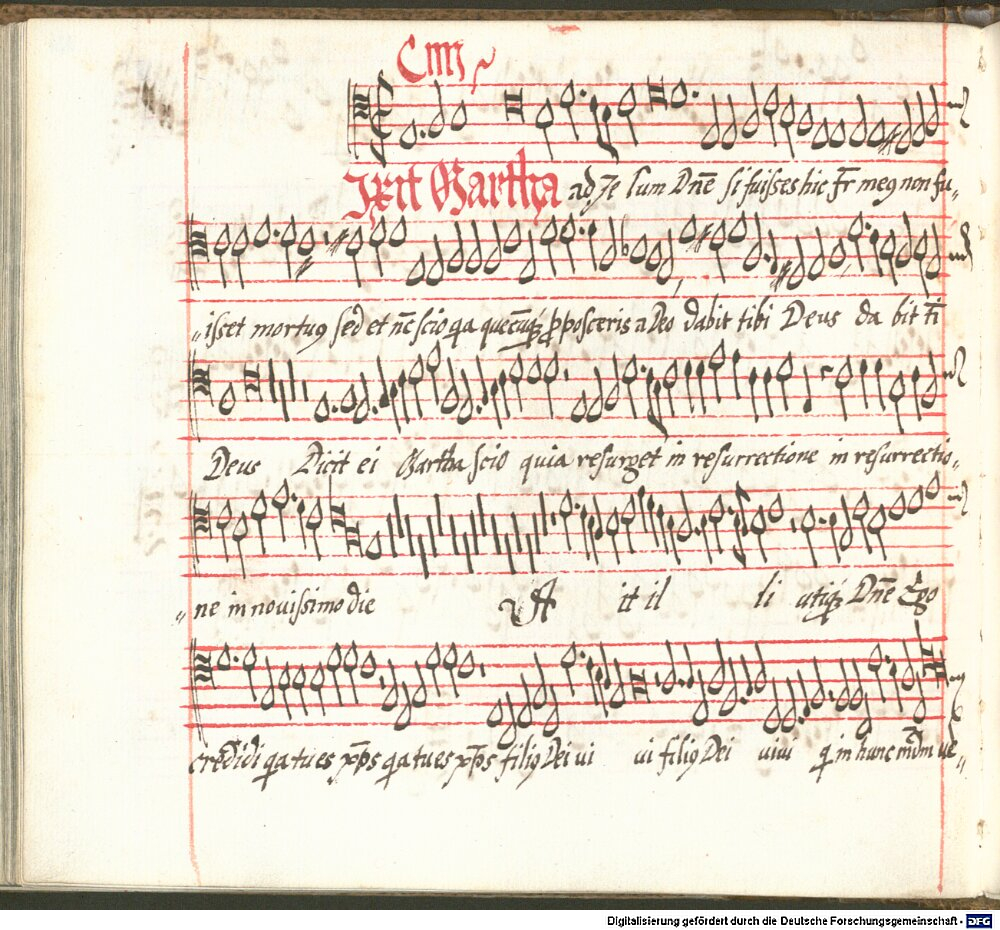 CIIIJ
Ixit Martha ad Je sum Dñe si fuisses hic Fr̄ meꝰ non fu„
„isset mortuꝰ sed et nc̄ scio qa quecūq; pposceris a Deo dabit tibi Deus da bit ti
Deus Dicit ei Martha scio quia resurget in resurrectione in resurrectio„
„ne in novissimo die Ait il li utiq; Dñe Ego
credidi qa tu es xp̄s qa tu es xp̄s filiꝰ Dei vi vi filiꝰ Dei vivi q in hunc mūdm ve„
Digitalisierung gefördert durch die Deutsche Forschungsgemeinschaft - DFG